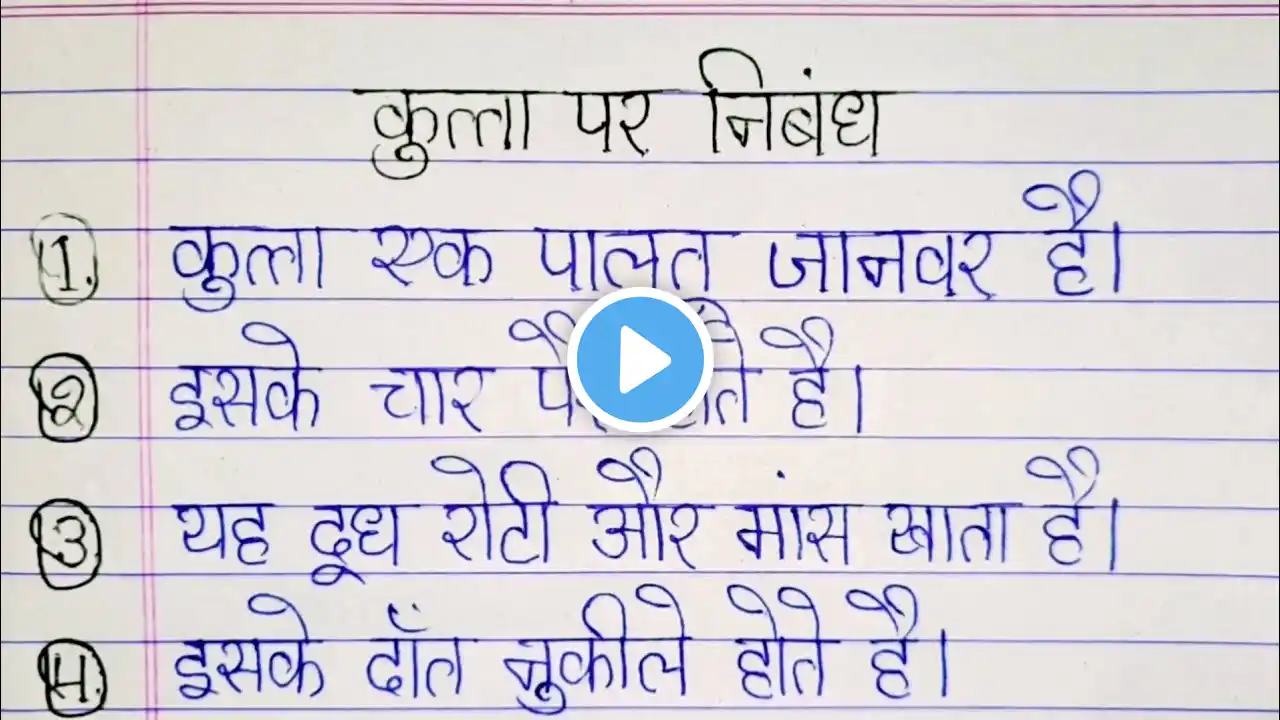 कुत्ता पर निबंध
1. कुत्ता एक पालतू जानवर है।
2. इसके चार पैर होते है।
3. यह दूध रोटी और मांस खाता है।
4. इसके दाँत नुकीले होते है।